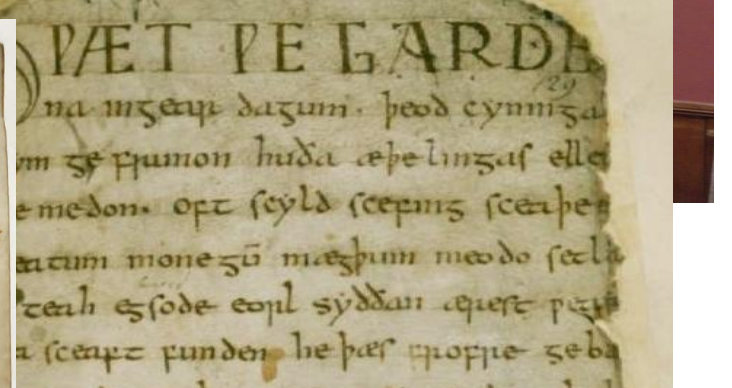 ǷÆT ǷE GARDE
129
na ingear dagum. þeod cyninga
ym ge frunon huða æþelingas elle
e medon. oft scyld scefing sceaþe
eatum monegū mægþum meodo setla
teah egsode eorl syððan ærest
sceaft funden he þæs frofre geba